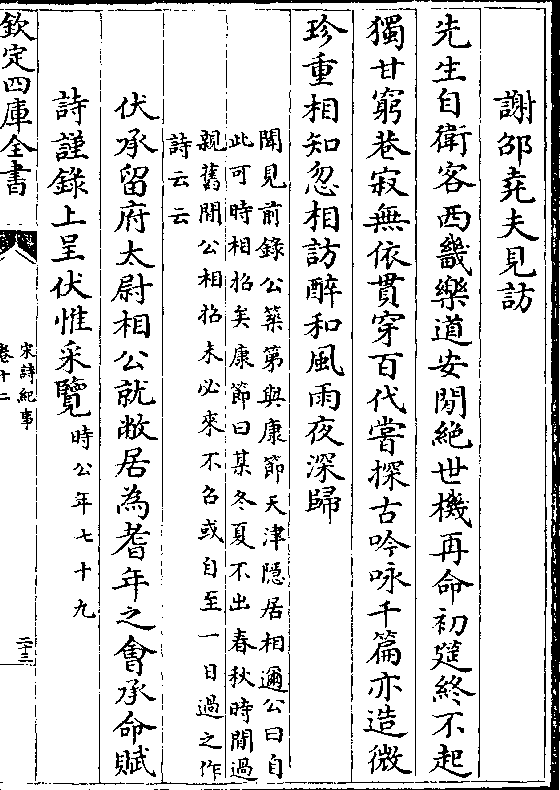 謝邵堯夫見訪
先生自衛客西畿樂道安閒絶世機再命初筵終不起
獨甘窮巷寂無依貫穿百代嘗探古吟咏千篇亦造微
珍重相知忽相訪醉和風雨夜深歸
聞見前錄公築第與康節天津隠居相邇公曰自
此可時相招矣康節曰某冬夏不出春秋時間過
親舊間公相招未必來不召或自至一日過之作
詩云云
伏承留府太尉相公就敝居為耆年之會承命賦
詩謹錄上呈伏惟采覽時公年七十九
欽定四庫全書
宋詩紀事
卷十二
二十三